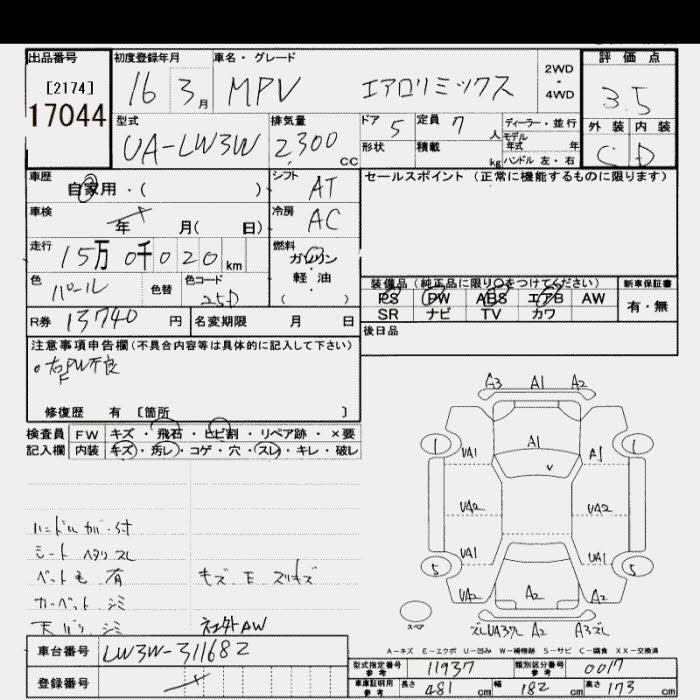 出品番号 初度登録年月 車名・グレード 2WD・4WD 評価点
[2174] 17044 16 3月 MPV エアロリミックス 3.5
型式 排気量 ドア 5 定員 7人 ディーラー・並行 外装 内装
UA-LW3W 2,300 CC 形状 積載 kg モデル年式 年 ハンドル 左・右 C D
車歴 自家用・( ) シフト AT セールスポイント(正常に機能するものに限ります)
車検 年 月( 日) 冷房 AC
走行 15万0千020km 燃料 ガソリン・軽油 ( )
色 パール 色替 色コード 25D 装備品(純正品に限り○をつけてください) 新車保証書
PS PW ABS エアB AW 有・無
R券 13740円 名変期限 月 日 SR ナビ TV カワ
後日品
注意事項申告欄(不具合内容等は具体的に記入して下さい)
○右FPW不良
修復歴 有 [箇所 ]
検査員 FW キズ・飛石・ヒビ割・リペア跡・×要
記入欄 内装 キズ・汚レ・コゲ・穴・スレ・キレ・破レ
A3 A1 A2
1 A1 1
UA1 A1
UA2 UA2
UA1 UA1
5 5
UA2 A2 A2
スペア
A2 A3ズレ
シート ヘタリ スレ
ペット毛 有 キズ E スリキズ
カーペット シミ
シミ 社外AW
A-キズ E-エクボ U-凹み W-補修跡 S-サビ C-腐食 XX-交換済
車台番号 LW3W-311682
登録番号
型式指定番号 参考 11937 類別区分番号 参考 0017
車庫証明用 参考 長さ 481cm 幅 182cm 高さ 173cm